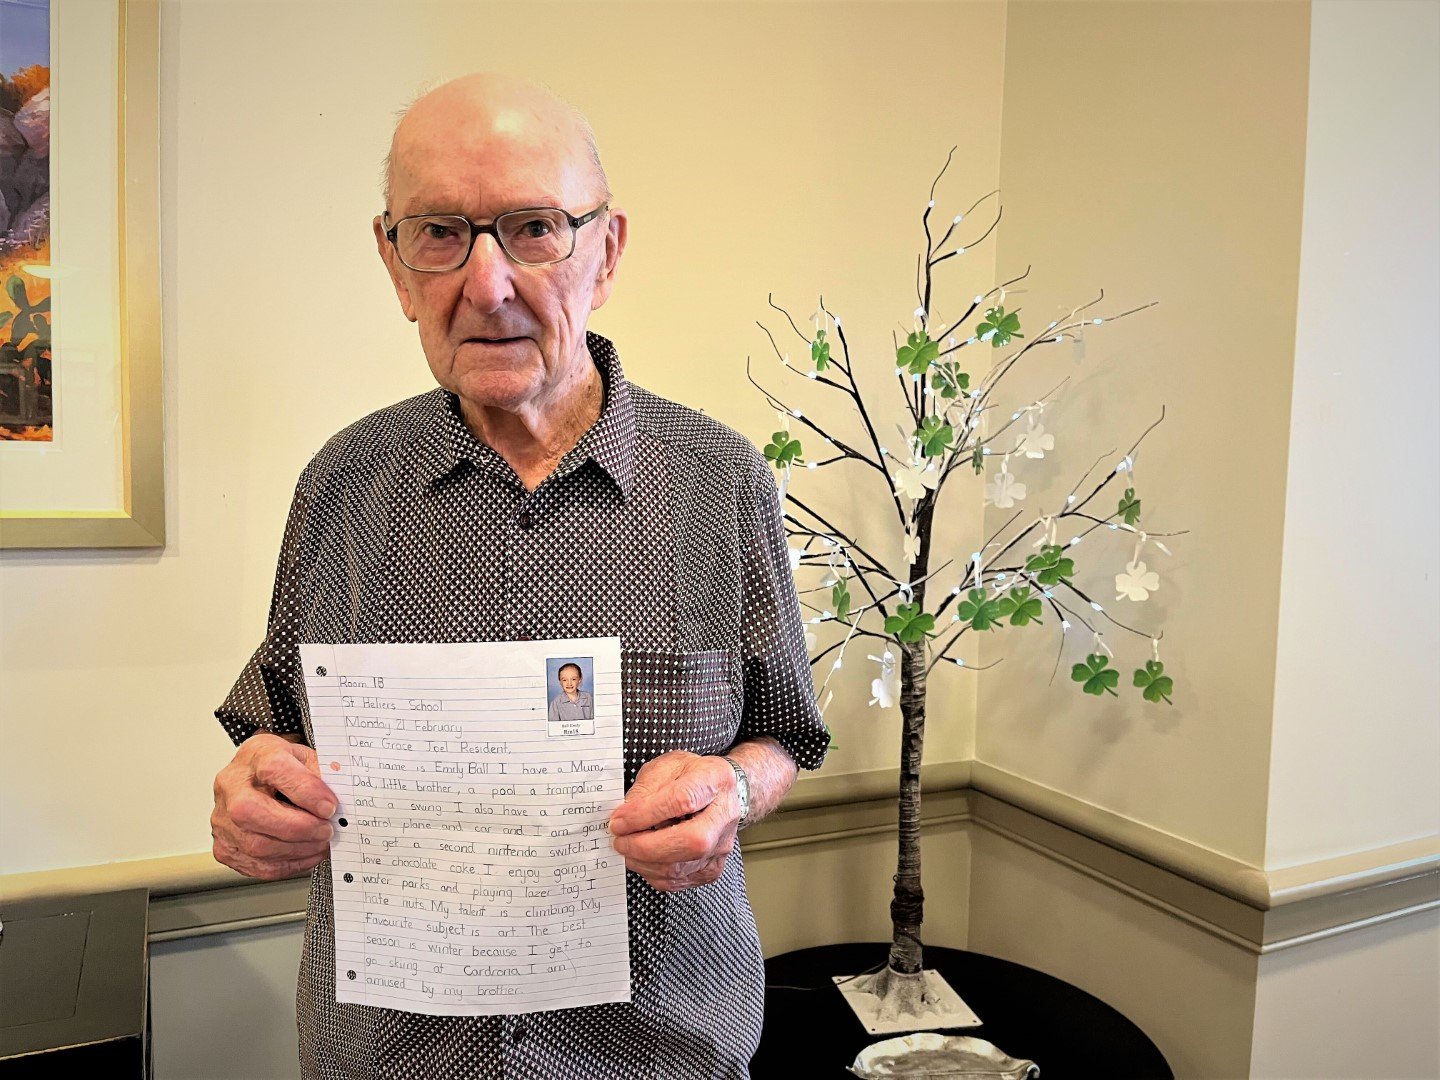 Room 18
St Heliers School
Monday 21 February
Dear Grace Joel Resident,
My name is Emily Ball I have a Mum,
Dad, little brother, a pool a trampoline
and a swing. I also have a remote
control plane and car and I am going
to get a second nintendo switch. I
love chocolate cake. I enjoy going to
water parks and playing lazer tag. I
hate nuts. My talent is climbing. My
favourite subject is art. The best
season is winter because I get to
go skiing at Cardrona. I am
amused by my brother.
Ball Emily
Rm 18